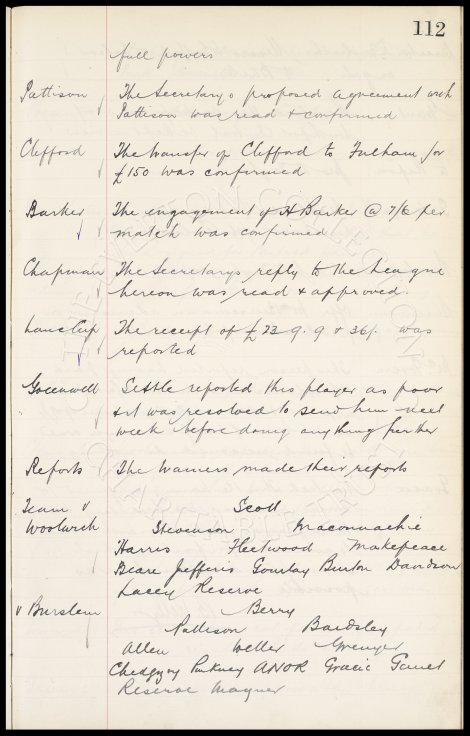 112
full powers
Pattison The Secretarys proposed agreement with
Pattison was read & confirmed
Clifford The transfer of Clifford to Fulham for
£150 was confirmed
Barker The engagement of H Barker @ 7/6 per
match was confirmed
Chapman The Secretarys reply to the League
hereon was read & approved.
Lanc Cup The receipt of £23. 9. 9 & 36/. was
reported
Greenwell Settle reported this player as poor
& it was resolved to send him next
week before doing anything further
Reports The trainers made their reports
Team v Scott
Woolwich Stevenson Maconnachie
Harris Fleetwood Makepeace
Beare Jefferis Gourlay Burton Davidson
Lacey Reserve
v Burslem Berry
Pattison Bardsley
Allen Weller Grenyer
Chedgzoy Parkney ANOR Gracie
Reserve Magner